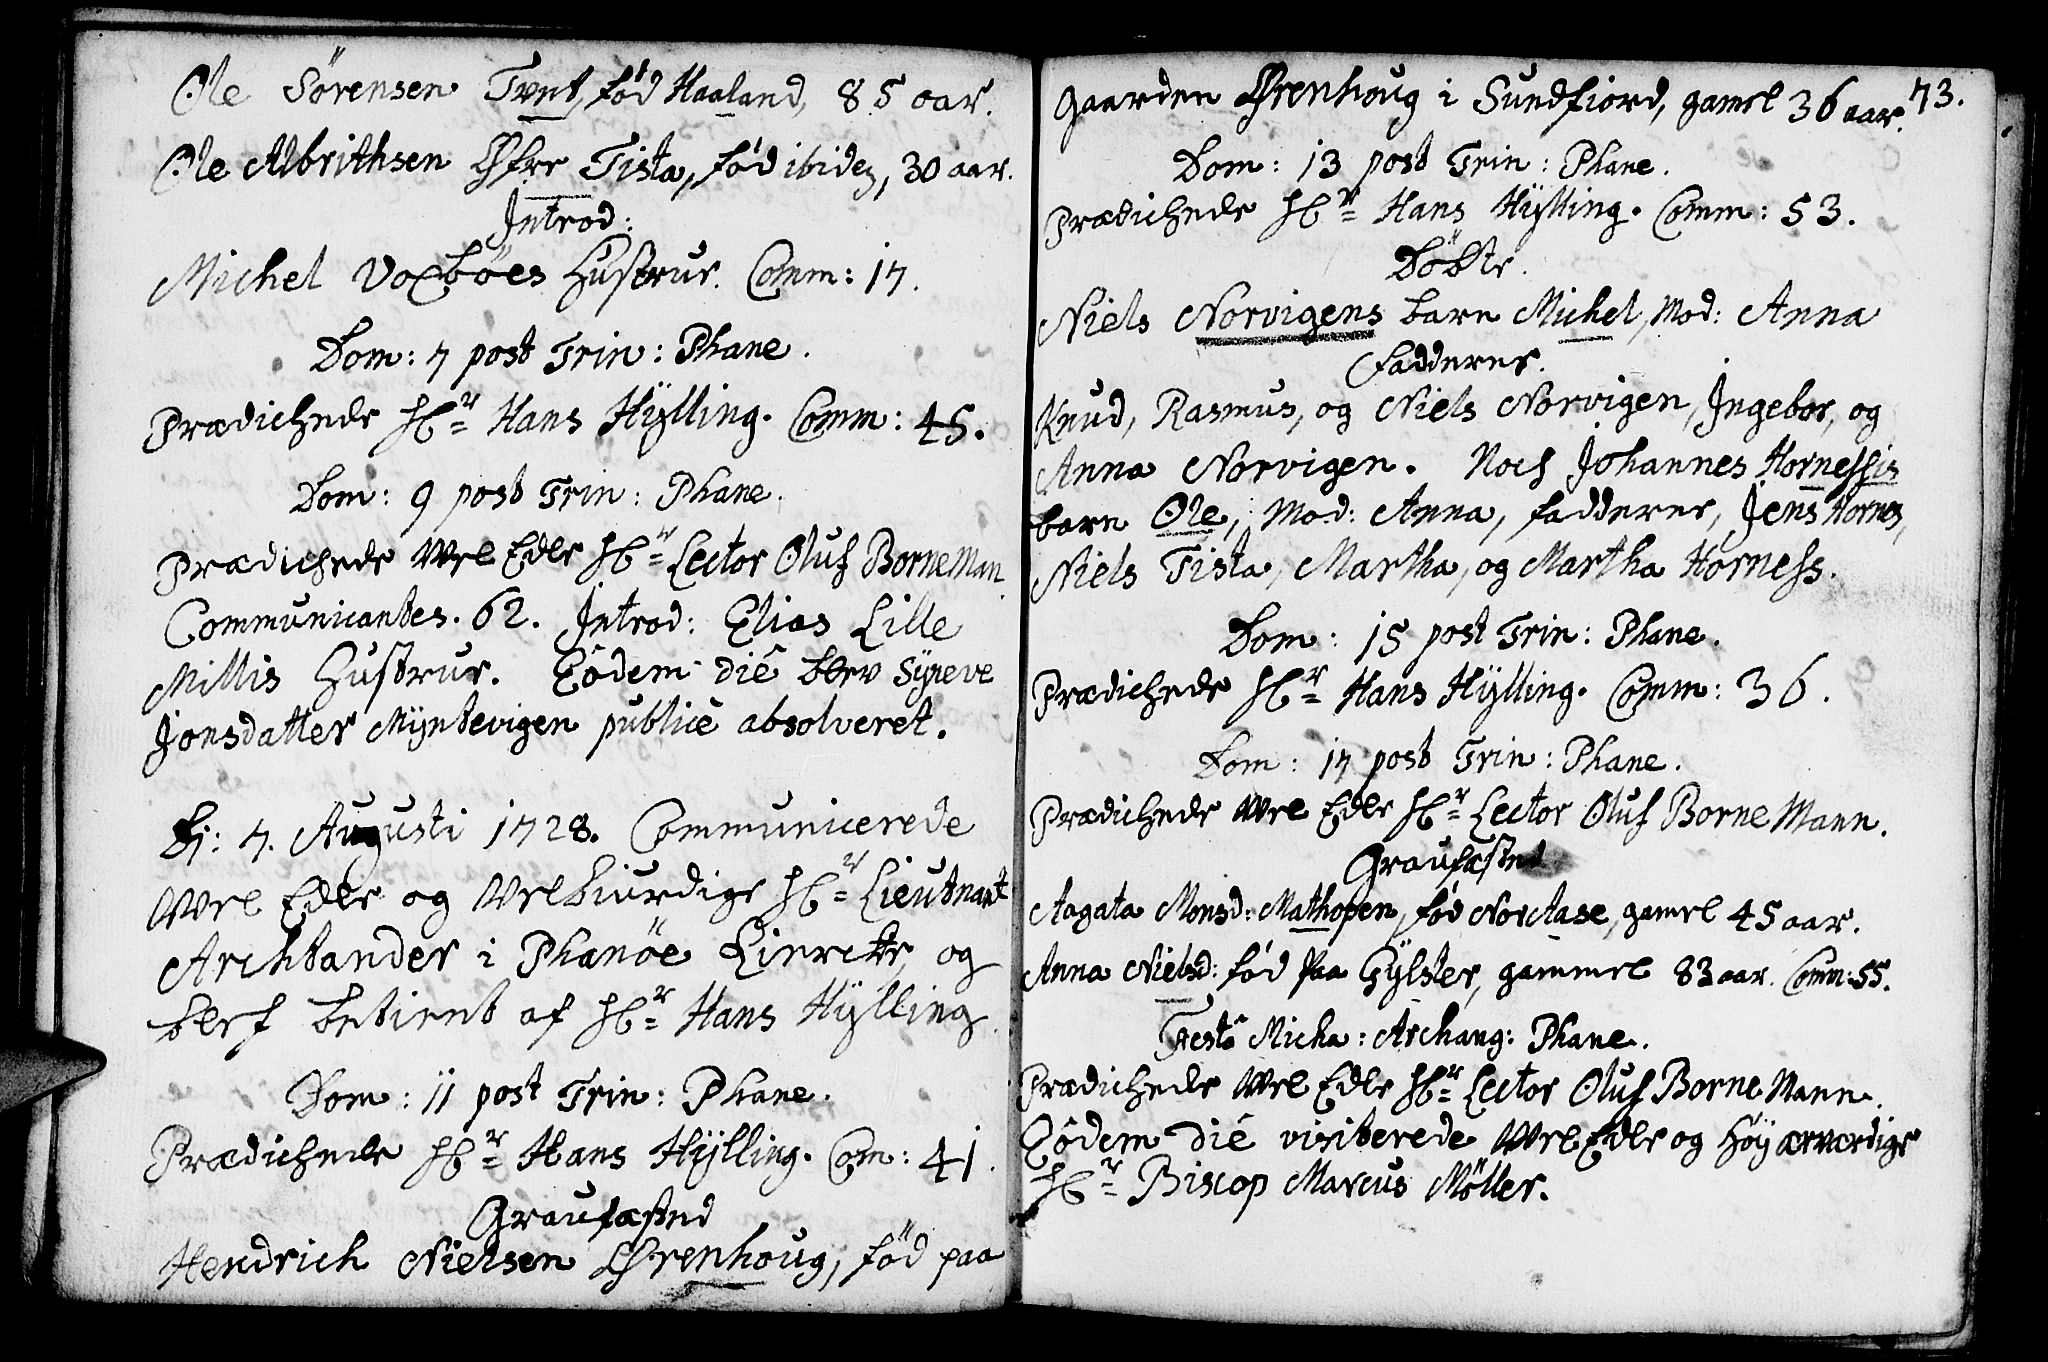 Ole Sörensen Tvnt, föd Haaland, 85 aar.
Ole Albrithsen Øfre Tista, föd ibidē, 30 aar.
Introd:
Michel Voxböes Hustrur. Comm: 17.
Dom: 7 post Trin: Phane.
Prædichede Hr Hans Hÿlling. Comm: 45.
Dom: 9 post Trin: Phane.
Prædichede Wel Edle Hr Lector Oluf Borneman
Communicantes. 62. Introd: Elias Lille
Millis Hustrue. Eôdem die blev Sÿneve
Jonsdatter Mÿntevigen publicè absolveret.
D: 7. Augusti 1728. Communicerede
Wel Edle og Velbiurdige Hr Lieutnant
Archtander i Phanöe Kircke, og
blef betient af Hr Hans Hÿlling.
Dom: 11 post Trin: Phane.
Prædichede Hr Hans Hÿlling. Com: 41.
Graufæsted
Hendrich Nielsen Ørenhoug, föd paa
73.
gaarden Ørenhoug i Sundfiord, gamel 36 aar.
Dom: 13 post Trin: Phane.
Prædichede Hr Hans Hÿlling. Comm: 53.
Döbte.
Niels Norvigens barn Michel, Mod: Anna
Fadderer.
Knud, Rasmus, og Niels Norvigen, Ingebor, og
Anna Norvigen. Noch Johannes Hornessis
barn Ole, Mod: Anna, fadderer, Jens Hornes,
Niels Tista, Martha, og Martha Horness.
Dom: 15 post Trin: Phane.
Prædichede Hr Hans Hÿlling. Comm: 36.
Dom: 17 post Trin: Phane.
Prædichede Wel Edle Hr Lector Oluf Borne Mann.
Graufæsted
Aagata Monsd: Mathopen, föd Nordaase, gamel 45 aar.
Anna Nielsd: föd paa Gÿlster, gammel 83 aar. Comm: 55.
Festô Micha: Archang: Phane.
Prædichede Wel Edle Hr Lector Oluf Borne Mann.
Eôdem diê visiterede Wel Edle og Höÿ ærværdige
Hr Biscop Marcus Möller.